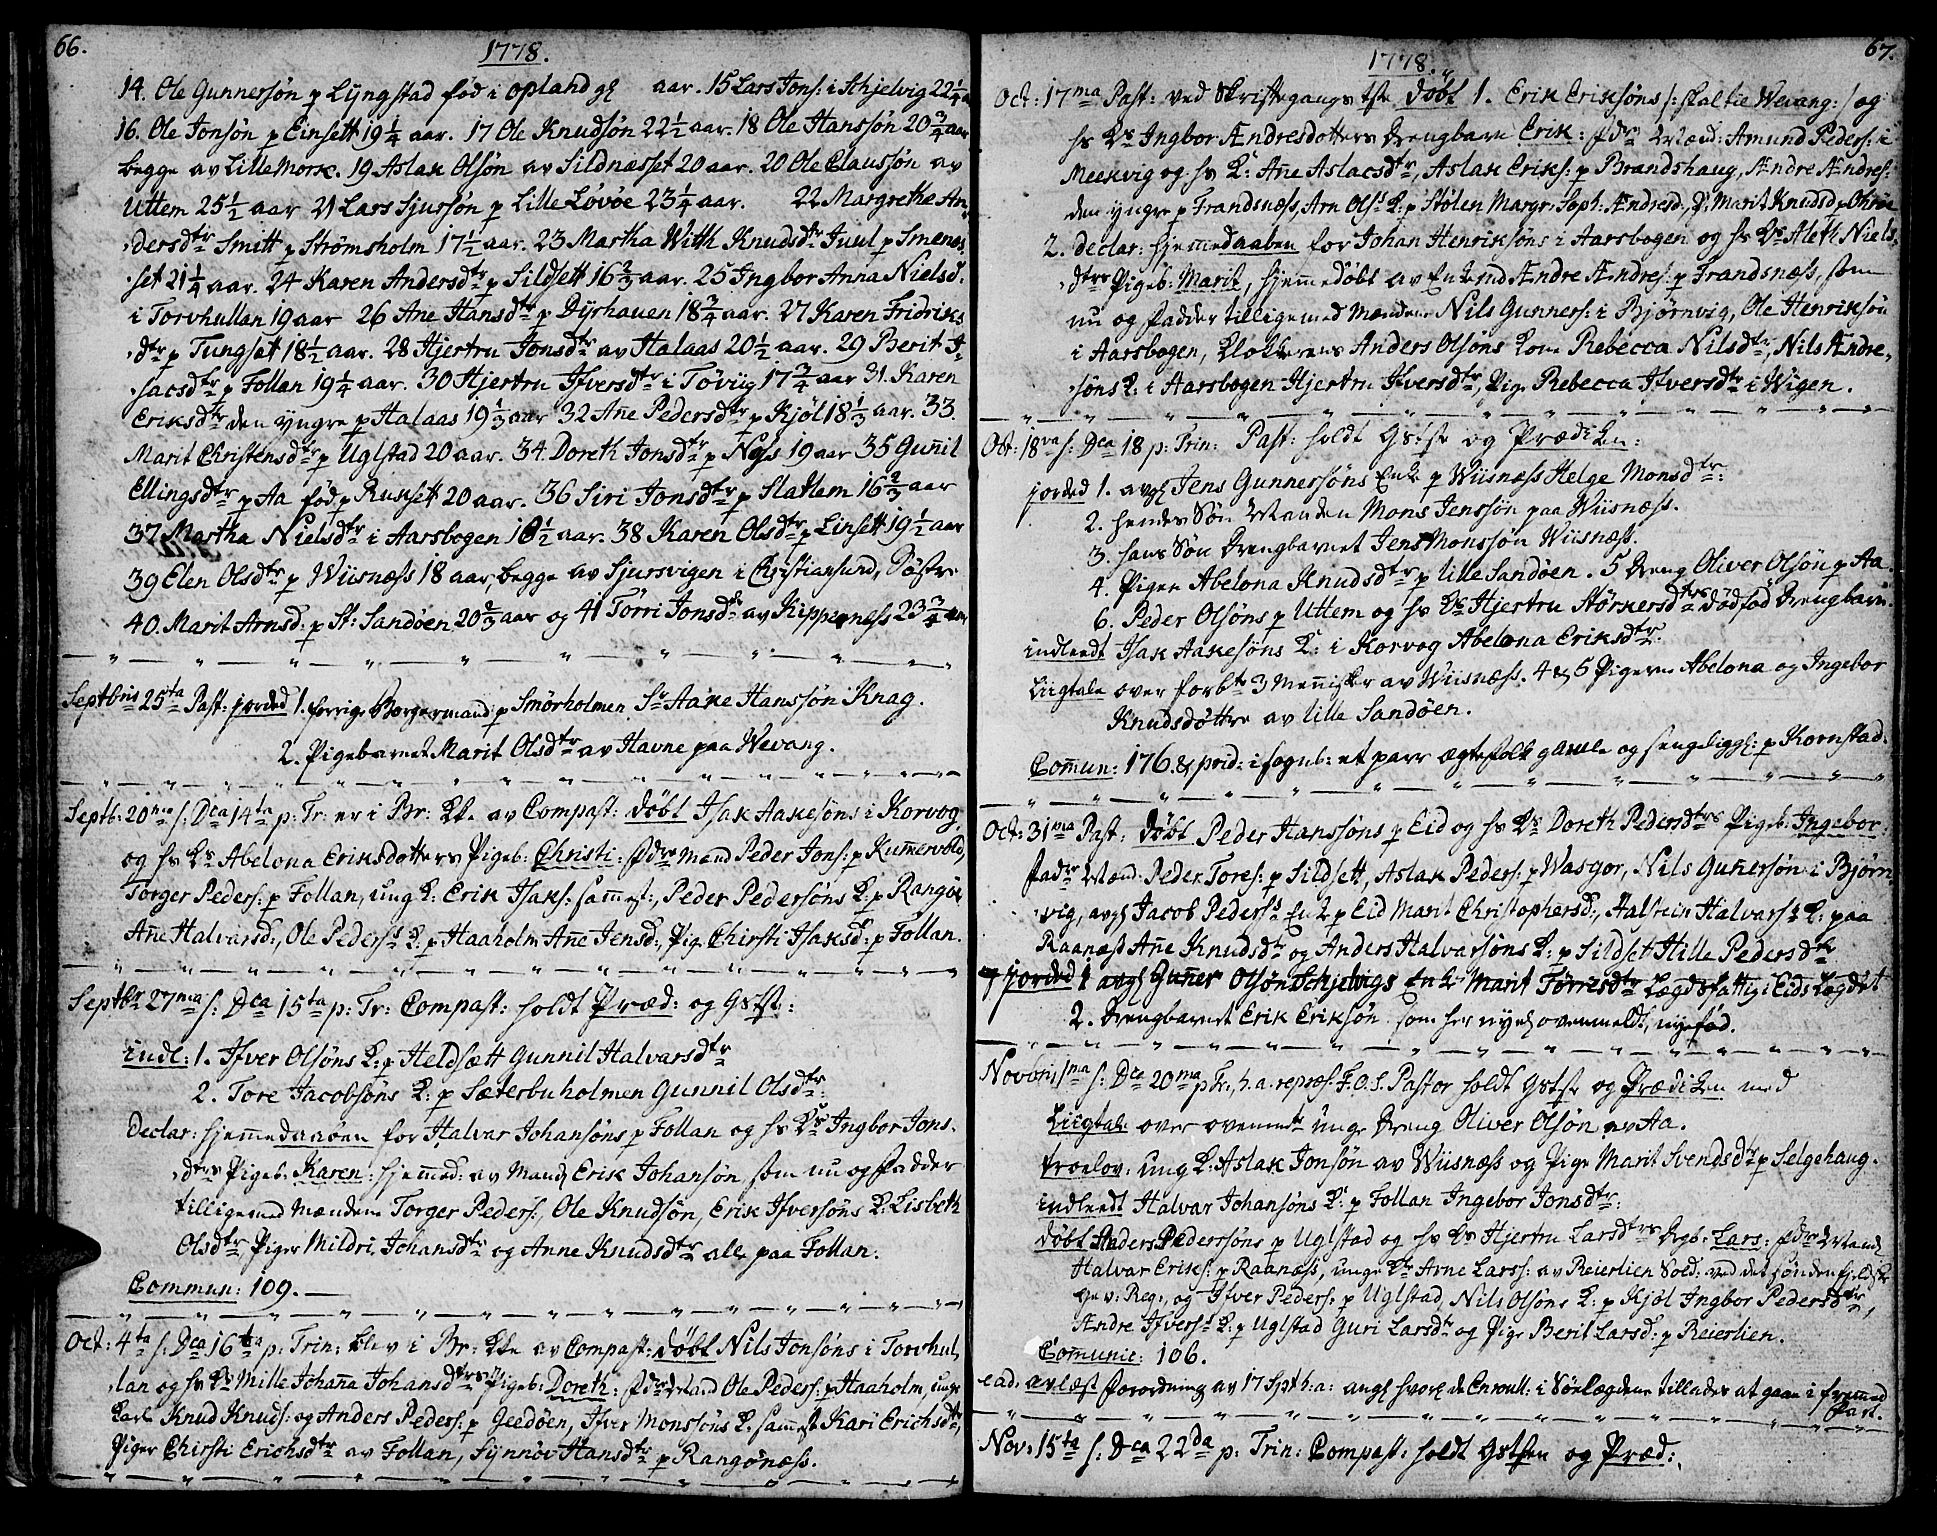 66.
1778.
14. Ole Gunnersøn p Lyngstad fød i opland aar. 15 Lars Jons: i Schjelvig 22 1/4
16. Ole Jonsøn p Einsett 19 1/4 aar. 17 Ole Knudsøn 22 1/2 aar. 18 Ole Hanssøn 20 3/4 aar
begge av Lille Mork. 19 Aslak Olsøn av Sildnæsset 20 aar. 20 Ole Claussøn av
Uttem 25 1/2 aar 21 Lars Sjursøn p Lille Lóvóe 23 1/4 aar. 22 Margrethe An-
:dersdtr Smitt p Strömsholm 17 1/2 aar. 23 Martha With Knudsdr Juul p Smenes
:set 21 1/4 aar. 24 Karen Andersdtr p Sildsett 16 2/3 aar. 25 Ingbor Anna Nielsd:
i Torvhullan 19 aar 26 Ane Hansdtr p Dyrhauen 18 3/4 aar. 27 Karen Fridriks
:dtr p Tungset 18 1/2 aar. 28 Hjertru Jonsdtr av Halaas 20 1/2 aar. 29 Berit J-
:sacsdtr p Follan 19 1/4 aar. 30 Hjertru Ifversdtr i Tøviig 17 3/4 aar 31. Karen
Eriksdtr den yngre p Halaas 19 1/3 aar 32 Ane Pedersdtr p Kjöl 18 1/3 aar. 33
Marit Christensdtr p Uglstad 20 aar. 34 Doreth Jonsdtr p Nøs 19 aar 35 Gunil
Ellingsdtr p Aa fød p Rukset 20 aar. 36 Siri Jonsdtr p Slatlem 16 2/3 aar
37 Martha Nielsdtr i Aarsbogen 18 1/2 aar. 38 Karen Olsdtr p Linsett 19 1/2 aar
39 Elen Olsdtr p Wiisnæss 18 aar, begge av Sjursvigen i Christiansund, Söstre
40. Marit Arnsd: p St: Sandöen 20 2/3 aar og 41 Törri Jonsdtr av Kippernæss 23 3/4 aar
Septbris 25ta Past: jorded 1. forrige Borgermand p Smörholmen Sr Aake Hanssön Knag.
2. Pigebarnet Marit Olsdtr av Havne paa Wevang.
Septb: 20ma s: Dca 14ta p: Tr: er i Br: Kke av Compast: döbt Isak Aakesöns i Korvog
og hs Ks Abelona Eriksdotters Pigeb: Christi: fdre Mand Peder Jons: p Kummervold,
Torger Peders: p Follan, ung K: Erik Isaks: sammest:, Peder Pedersöns K: p Rangöe
Ane Halvarsd:, Ole Peders: K: p Haaholm Ane Jensd:, Pig: Chirsti Isaksd: p Follan.
Septbr 27ma s: Dca 15ta p: Tr: Compast: holdt Præd: og Gstst:
Indl: 1. Ifver Olsöns K: p Heldsætt Gunnil Halvarsdtr
2. Tore Jacobsöns K: p Sæterbuholmen Gunnil Olsdtr:
Declar: hjemmedaaben for Halvar Johansöns p Follan og hs Ks Ingbor Jons-
:dtrs Pigeb: Karen: hjemmed: av Mand Erik Johansön som nu og fadder
tilligemed Mændene Torger Peders:, Ole Knudsön, Erik Ifversöns K: Lisbeth
Olsdtr, Piger Mildri Johansdtr og Anne Knudsdtr alle paa Follan:
Commun: 109.
Oct: 4ta s: Dca 16ta p: Trin: blev i Br: Kke av Compast: döbt Nils Jonsöns i Torvhul-
:lan og hs Ks Mille Johana Johansdtrs Pigeb: Doreth: fdre Mand Ole Peders: p Haaholm, unge
Karle Knud Knuds: og Anders Peders: p Geedöen, Ifver Monssöns K: sammest Kari Erichsdtr,
Piger Chirsti Erichsdtr av Follan, Synnöv Hansdtr p Rangönæss.
67.
1778.
Oct: 17ma Past: ved Skriftegangs tste döbt 1. Erik Eriksöns /: skal tie Wevang: / og
hs Ks Ingbor Ændresdotters drengbarn Erik: fdre Mænd: Amund Peders: i
Meekvig og hs K: Ane Aslacsdtr, Aslak Eriks: p Brandshaug, Ændre Ændres:
den yngre p Frandsnæss, Arn Ols: K: p Stölen Margr: Soph: Ændresd:, P: Marit Knudsd p
2. Declar: hjemmedaaben for Johan Henriksöns i Aarsbogen og hs Ks Aleth Niels-
:dtrs Pigeb: Marit, hjemedöbt av Enkmd Ændre Ændres: p Frandsnæss, som
nu og fadder tilligemed Mændene Nils Gunners: i Bjørnvig, Ole Henriksön
i Aarsbogen, klokkerens Anders Olsöns kone Rebecca Nilsdtr, Nils Ændre-
:söns K: i Aarsbogen Hjertru Ifversdtr, Pige Rebecca Ifversdtr i Wigen.
Oct: 18va s: Dca 18 p: Trin: Past: holdt Gstst og Prædiken:
jorded 1. avg Jens Gunnersöns Enke p Wiisnæss Helge Monsdtr:
2. hendes Sön Manden Mons Jenssön paa Wiisnæss.
3. hans Sön drengbarnet Jens Monssön Wiisnæss.
4. Pigen Abelona Knudsdtr p lille Sandöen. 5 dreng Oliver Olsön p Aa.
6. Peder Olsöns p Uttem og hs Ks Hjertru Störkersdtrs dödfød drengbarn.
indleedt Isak Aakesöns K: i Korvog Abelona Eriksdtr.
Liigtale over forbte 3 Mennisker av Wiisnæss. 4 & 5 Pigerne Abelona og Ingebor
Knudsdøttre av lille Sandöen.
Commun: 176. & prid: i sognb: et parr ægtefolk gamle og sengeligg: p Kornstad.
Oct: 31ma Past: döbt Peder Hanssöns p Eid og hs Ks Doreth Pedersdtrs Pigeb: Ingebor:
fadre Mænd: Peder Tores: p Sildsett, Aslak Peders: p Wasgor, Nils Gunersön i Björn-
:vig, avg Jacob Peders: Enk p Eid Marit Christophersd:, Halstein Halvars: K: paa
Raanæst Ane Knudsdtr og Anders Halvarsöns K: p Sildset Hille Pedersdtr
og jorded 1 avg Guner Olsön Schjelvigs Enke Marit Törresdtr Lægdsfattig i Eids Lægdet
2. Drengbarnet Erik Eriksön som her nyel ovenmeldt, nyefød.
Novbris 1ma s: Dca 20ma p Tr:, h. a. repræs: F.O.S. Pastor holdt Gstst og Prædiken med
Liigtale over ovennte unge dreng Oliver Olsön av Aa.
troelov: ung K: Aslak Jonsön av Wiisnæss og Pige Marit Svendsdtr p Selgehaug.
indleedt Halvar Johansöns K: p Follan Ingebor Jonsdtr:
döbt Anders Pederssöns p Uglstad og hs Ks Hjertru Larsdtrs drgb: Lars: fdre Mænd
Halvar Eriks: p Raanæss, unge K: Arne Larss: av Reierlien Sold: ved det söndenfieldske
Gev: Reg:, og Ifver Peders: p Uglstad, Nils Olsöns K: p Kjöl Ingbor Pedersdtr,
Andre Ifvers: K: p Uglstad Guri Larsdtr og Pige Berit Larsd: p Reierlien.
Communic: 106.
ead. avlæst forordning av 17 Sptb: a: ang hvorl de Enroull: i Sölægdene tillades at gaae i fremmed
Fart.
Nov: 15ta s: Dca 22da p: Trin: Compast: holdt Gstsen og Præd: